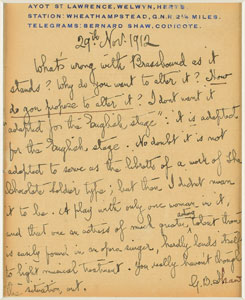 AYOT ST LAWRENCE, WELWYN, HERTS
STATION: WHEATHAMPSTEAD, G.N.R. 2¼ MILES.
TELEGRAMS: BERNARD SHAW, CODICOTE.
29th Nov. 1912
What's wrong with Brassbound as it
stands? Why do you want to alter it? How
do you propose to alter it? I don't want it
adapted for the "English stage". It is adapted
for the English stage. No doubt it is not
adapted to serve as the libretto of a work of the
Chocolate Soldier type; but then I didn't mean
it to be. A play with only one woman in it,
and that one an actress of much greater talent than
is easily found in an opera singer, hardly lends itself
to light musical treatment. You really haven't thought
the situation out.
G. B. Shaw